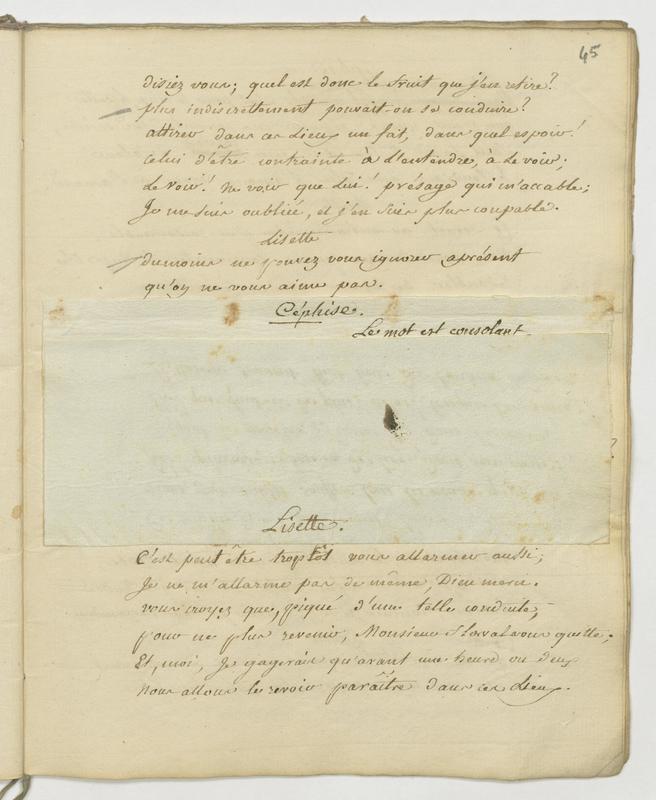 45
disiez vous; quel est donc le fruit que j'en retire?
plus indiscrettement pouvait-on se conduire?
attirer dans ces Lieux un fat, dans quel espoir!
celui d'être contrainte à L'entendre, à Le voir;
Le voir! ne voir que Lui! présage qui m'accable;
Je me suis oubliée, et j'en suis plus coupable.
Lisette
dumoins ne pouvez vous ignorer aprésent
qu'on ne vous aime pas.
Céphise.
Le mot est consolant.
Lisette.
C'est peut être trop tôt vous allarmer aussi;
Je ne m'allarme pas de même, Dieu merci.
vous croyez que, piqué d'une telle conduite,
pour ne plus revenir, Monsieur Florval vous quitte;
Et, moi, Je gagerais qu'avant une heure ou deux
Nous allons le revoir paraître dans ces Lieux.